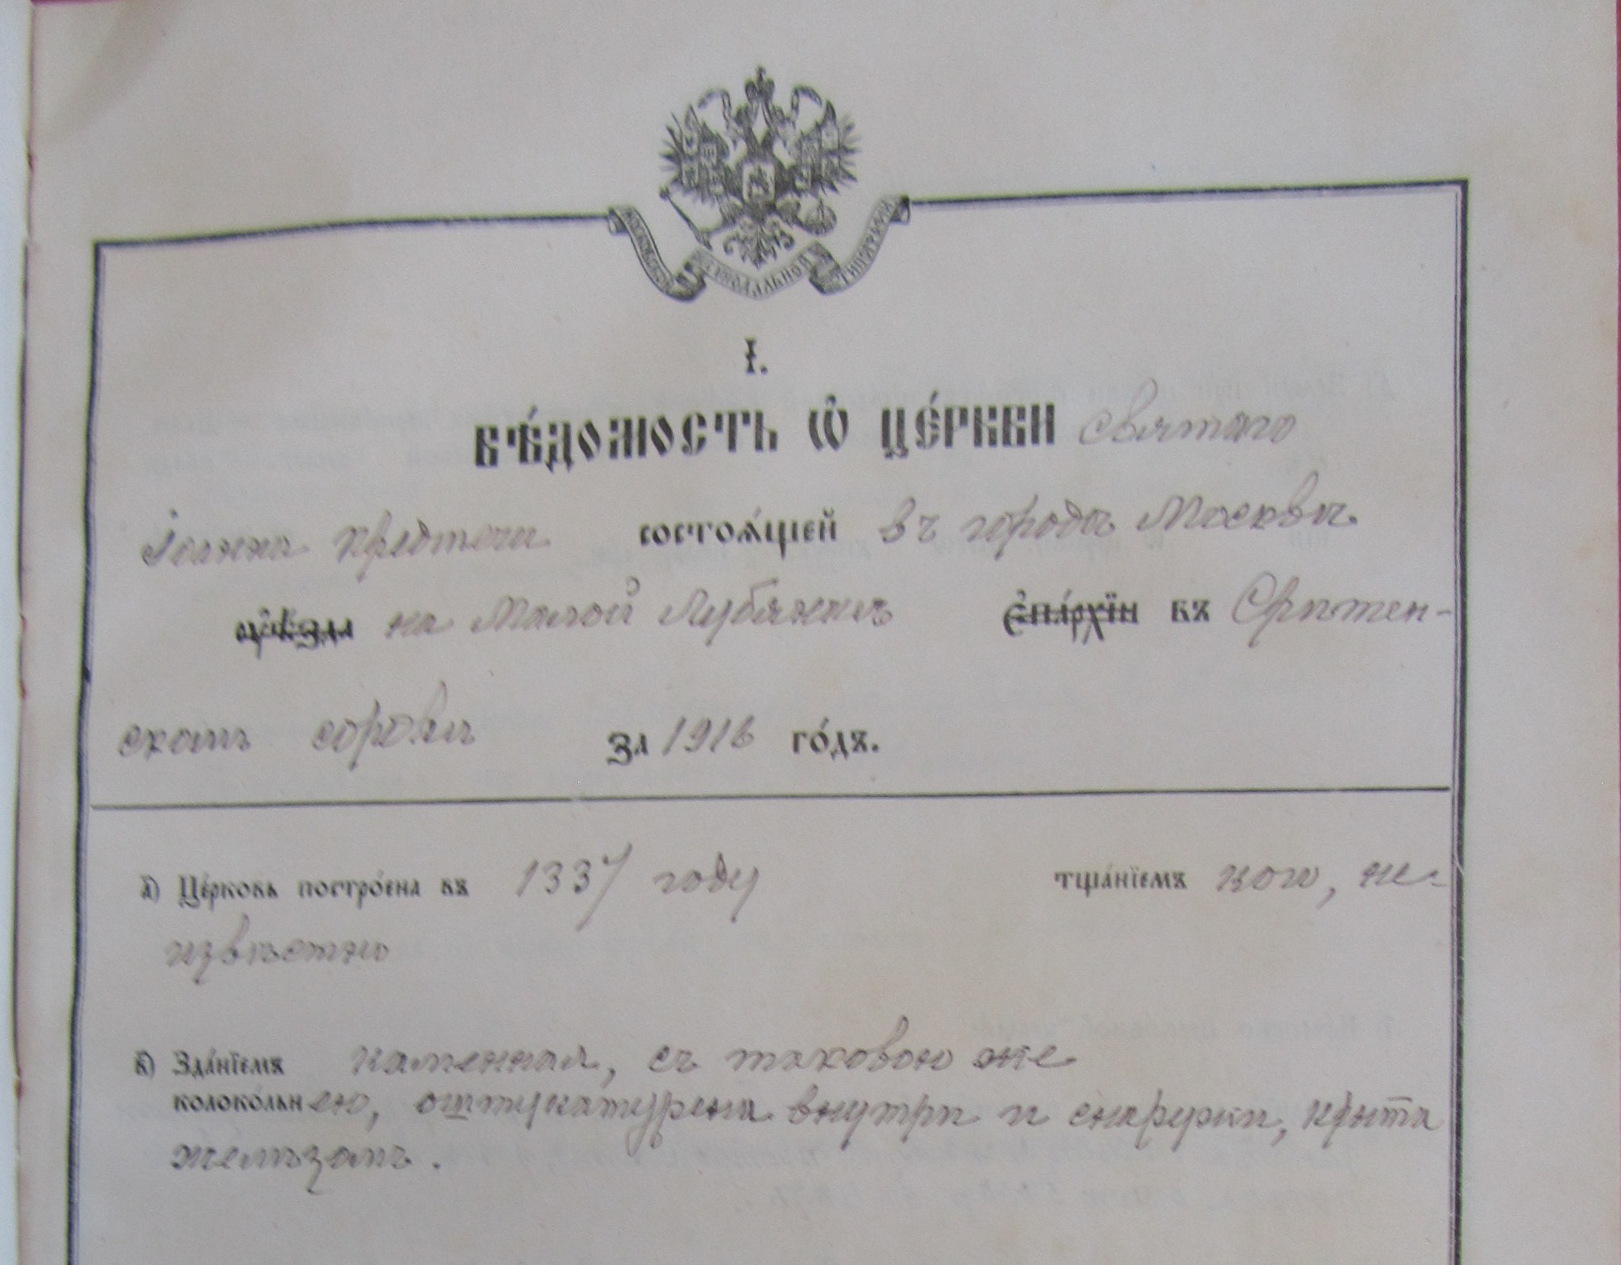 МОСКОВСКОЙ СѴНОДАЛЬНОЙ ТИПОГРАФІИ
І.
ВѢ́ДОМОСТЬ Ѡ҆ ЦЕ́РКВИ Святаго
Іоанна Предтечи состоѧ́щей въ городѣ Москвѣ
ᲂу҆ѣ́зда на Малой Лубянкѣ є҆па́рхїи въ Срѣтен-
скомъ сорокѣ за 1916 го́дъ.
а҃) Це́рковь постро́ена въ 1337 году тща́нїемъ кого, не-
извѣстно
в҃) Зда́нїемъ каменная, съ таковою же
колоко́льнею, оштукатурена внутри и снаружи, крыта
желѣзомъ.